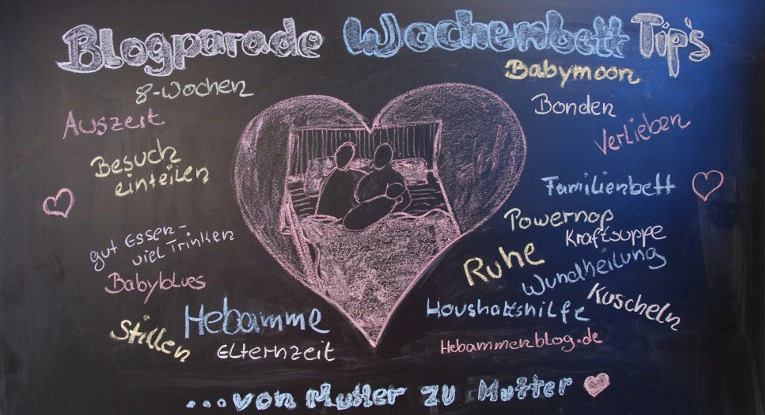 Blogparade Wochenbett Tip's
8-Wochen
Auszeit
Besuch
einteilen
gut Essen-
viel Trinken
Babyblues
Hebamme
Stillen
Elternzeit
Babymoon
Bonden
Verlieben
Familienbett
Powernap
Kraftsuppe
Ruhe
Wundheilung
Kuscheln
Haushaltshilfe
Hebammenblog.de
...von Mutter zu Mutter